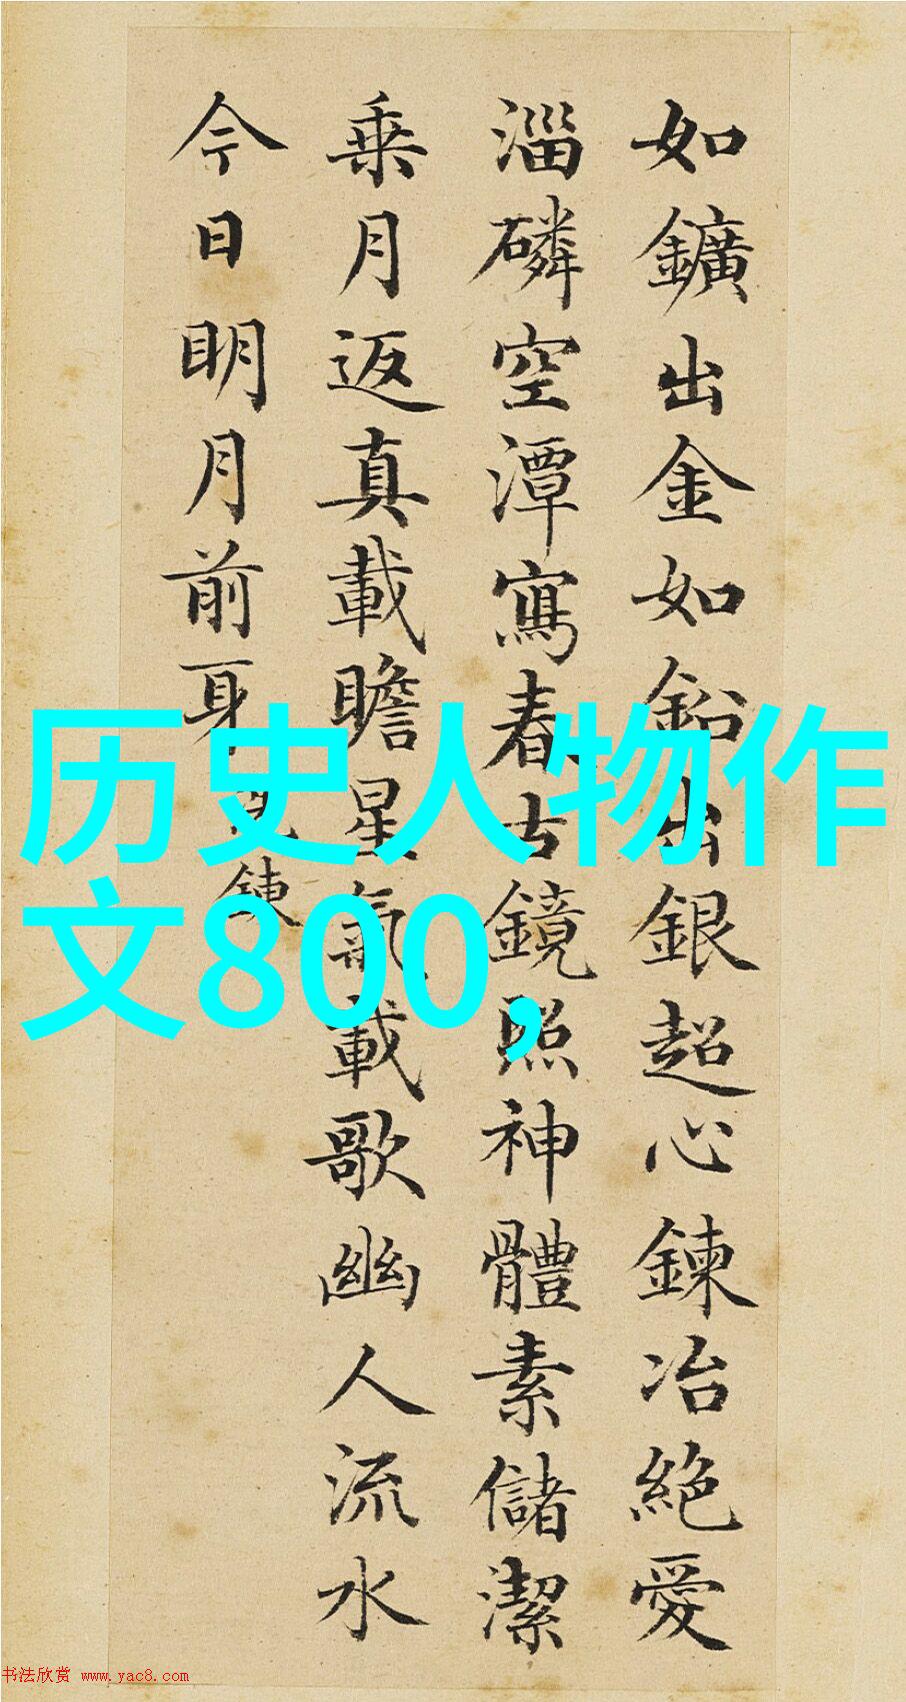 如鑛出金如鉛出銀超心鍊冶絕愛
淄磷空潭寫春古鏡照神體素儲潔
乗月返真載瞻星氣載歌幽人流水
今日明月前身
鍊
历史人物作
文800,
书法欣赏 www.yac8.com